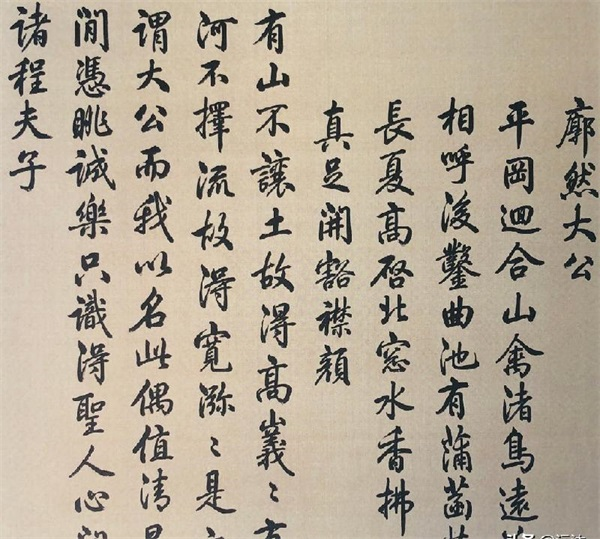 廓然大公
平岡迴合山禽渚鳥遠
相呼後鑿曲池有蒲菡
長夏高啓北窓水香拂
真足開豁襟顔
有山不讓土故得高㠢〻
河不擇流故得寬㳽〻是
謂大公而我以名此偶值清
閒憑眺誠樂只識得聖人心
諸程夫子